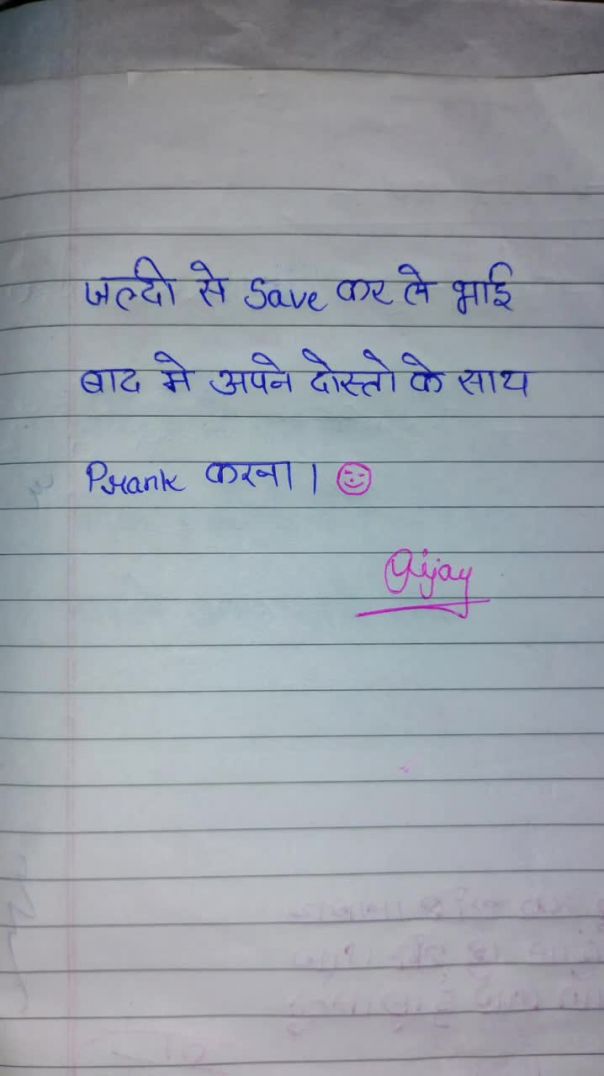 जल्दी से Save कर ले भाई
बाद मे अपने दोस्तो के साथ
Prank करना ।